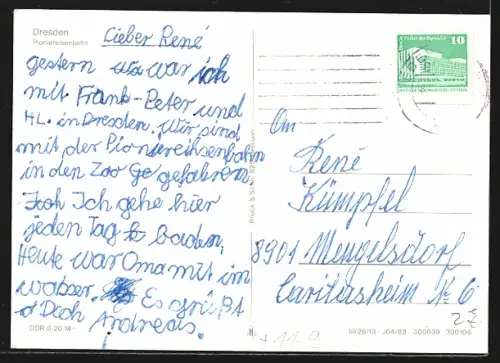 Dresden
Pioniereisenbahn
Lieber René
gestern war ich
mit Frank-Peter und
HL. in Dresden. Wir sind
mit der Pioniereihsenbahn
in den Zoo gefahren
Ich gehe hier
jeden Tag baden.
Heute war Oma mit im
wasser. Es grüßt
Dich Andreas.
DDR 0,20 M
Bruck & Sohn,
10
An
René
Kümpfel
8901 Mengelsdorf
Caritasheim Nr 6
III/26/13 - J04/83 300039 300106